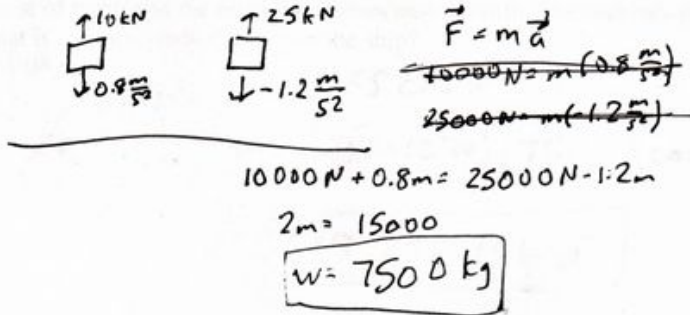 10 kN
25 kN
0.8 m/s²
-1.2 m/s²
F⃗ = m a⃗
10000N = m (0.8 m/s²)
25000N = m(-1.2 m/s²)
10000N + 0.8m = 25000N - 1.2m
2m = 15000
w = 7500 kg